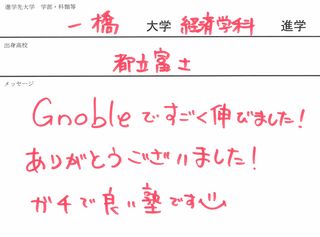 進学先大学 学部・科類等
一橋 大学 経済学科 進学
出身高校
都立富士
メッセージ
Gnobleですごく伸びました!
ありがとうございました!
ガチで良い塾です